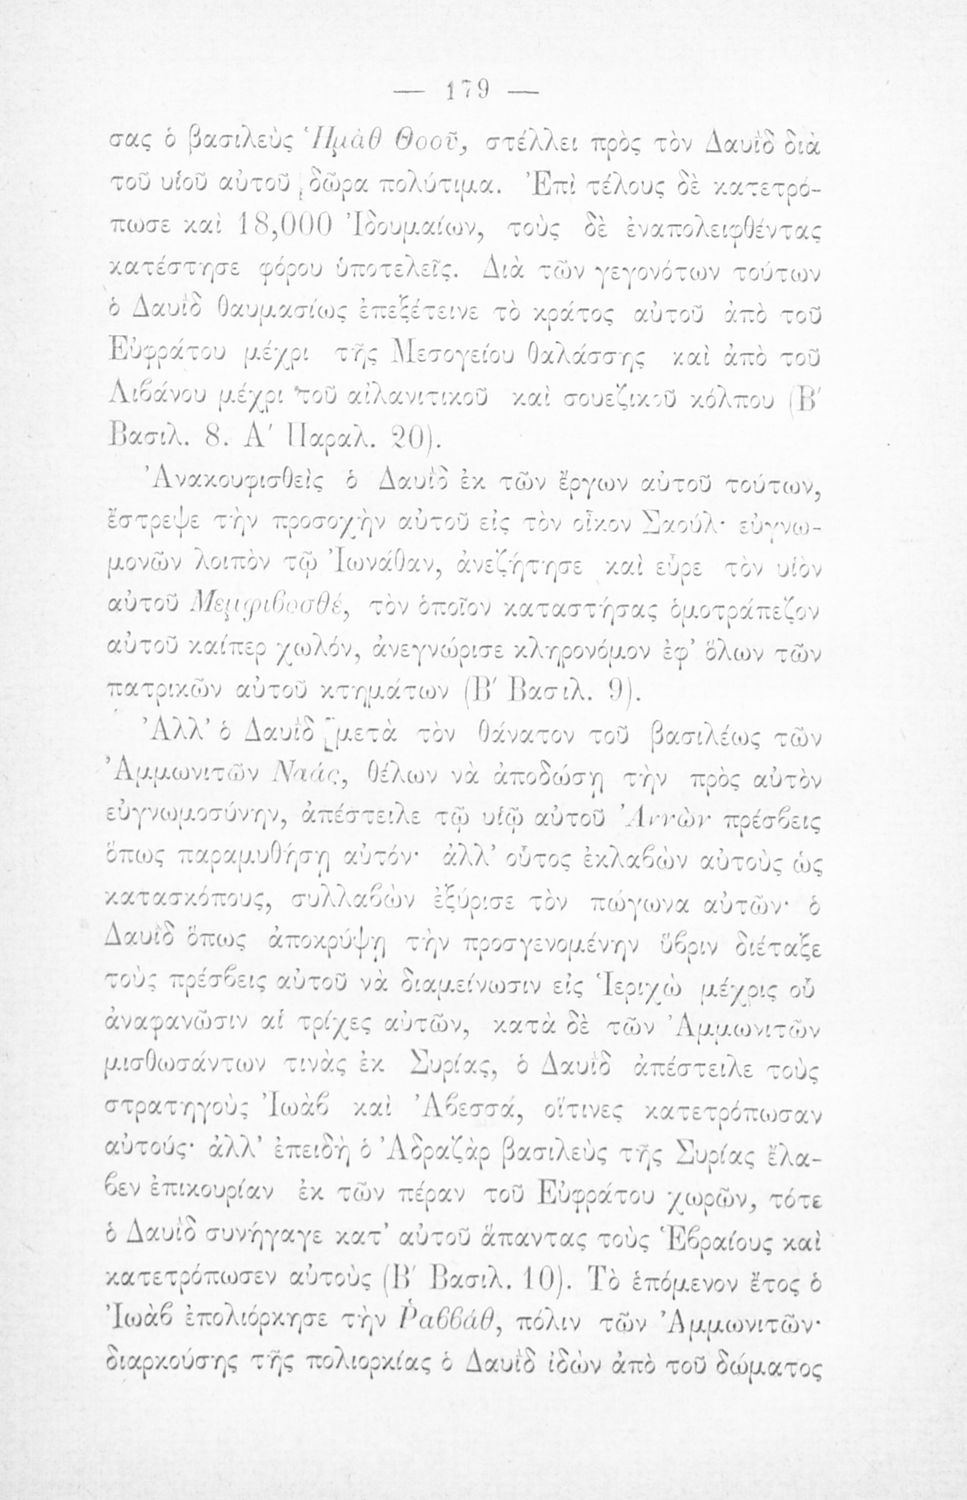 — 179 —
σας ὁ βασιλεὺς Ἡμὰθ Θοοῦ, στέλλει πρὸς τὸν Δαυῒδ διὰ
τοῦ υἱοῦ αὐτοῦ δῶρα πολύτιμα. Ἐπὶ τέλους δὲ κατετρό-
πωσε καὶ 18,000 Ἰδουμαίων, τοὺς δὲ ἐναπολειφθέντας
κατέστησε φόρου ὑποτελεῖς. Διὰ τῶν γεγονότων τούτων
ὁ Δαυῒδ θαυμασίως ἐπεξέτεινε τὸ κράτος αὐτοῦ ἀπὸ τοῦ
Εὐφράτου μέχρι τῆς Μεσογείου θαλάσσης καὶ ἀπὸ τοῦ
Λιβάνου μέχρι τοῦ αἰλανιτικοῦ καὶ σουεζικοῦ κόλπου (Β′
Βασιλ. 8. Α′ Παραλ. 20).
Ἀνακουφισθεὶς ὁ Δαυῒδ ἐκ τῶν ἔργων αὐτοῦ τούτων,
ἔστρεψε τὴν προσοχὴν αὐτοῦ εἰς τὸν οἶκον Σαούλ· εὐγνω-
μονῶν λοιπὸν τῷ Ἰωνάθαν, ἀνεζήτησε καὶ εὗρε τὸν υἱὸν
αὐτοῦ Μεμφιβοσθέ, τὸν ὁποῖον καταστήσας ὁμοτράπεζον
αὐτοῦ καίπερ χωλόν, ἀνεγνώρισε κληρονόμον ἐφ’ ὅλων τῶν
πατρικῶν αὐτοῦ κτημάτων (Β′ Βασιλ. 9).
Ἀλλ’ ὁ Δαυῒδ μετὰ τὸν θάνατον τοῦ βασιλέως τῶν
Ἀμμωνιτῶν Ναάς, θέλων νὰ ἀποδώσῃ τὴν πρὸς αὐτὸν
εὐγνωμοσύνην, ἀπέστειλε τῷ υἱῷ αὐτοῦ Ἀννὼν πρέσβεις
ὅπως παραμυθήσῃ αὐτόν· ἀλλ’ οὗτος ἐκλαβὼν αὐτοὺς ὡς
κατασκόπους, συλλαβὼν ἐξύρισε τὸν πώγωνα αὐτῶν· ὁ
Δαυῒδ ὅπως ἀποκρύψῃ τὴν προσγενομένην ὕβριν διέταξε
τοὺς πρέσβεις αὐτοῦ νὰ διαμείνωσιν εἰς Ἱεριχὼ μέχρις οὗ
ἀναφανῶσιν αἱ τρίχες αὐτῶν, κατὰ δὲ τῶν Ἀμμωνιτῶν
μισθωσάντων τινὰς ἐκ Συρίας, ὁ Δαυῒδ ἀπέστειλε τοὺς
στρατηγοὺς Ἰωὰβ καὶ Ἀβεσσά, οἵτινες κατετρόπωσαν
αὐτούς· ἀλλ’ ἐπειδὴ ὁ Ἀδραζὰρ βασιλεὺς τῆς Συρίας ἔλα-
βεν ἐπικουρίαν ἐκ τῶν πέραν τοῦ Εὐφράτου χωρῶν, τότε
ὁ Δαυῒδ συνήγαγε κατ’ αὐτοῦ ἅπαντας τοὺς Ἑβραίους καὶ
κατετρόπωσεν αὐτοὺς (Β′ Βασιλ. 10). Τὸ ἑπόμενον ἔτος ὁ
Ἰωὰβ ἐπολιόρκησε τὴν Ῥαββάθ, πόλιν τῶν Ἀμμωνιτῶν·
διαρκούσης τῆς πολιορκίας ὁ Δαυῒδ ἰδὼν ἀπὸ τοῦ δώματος